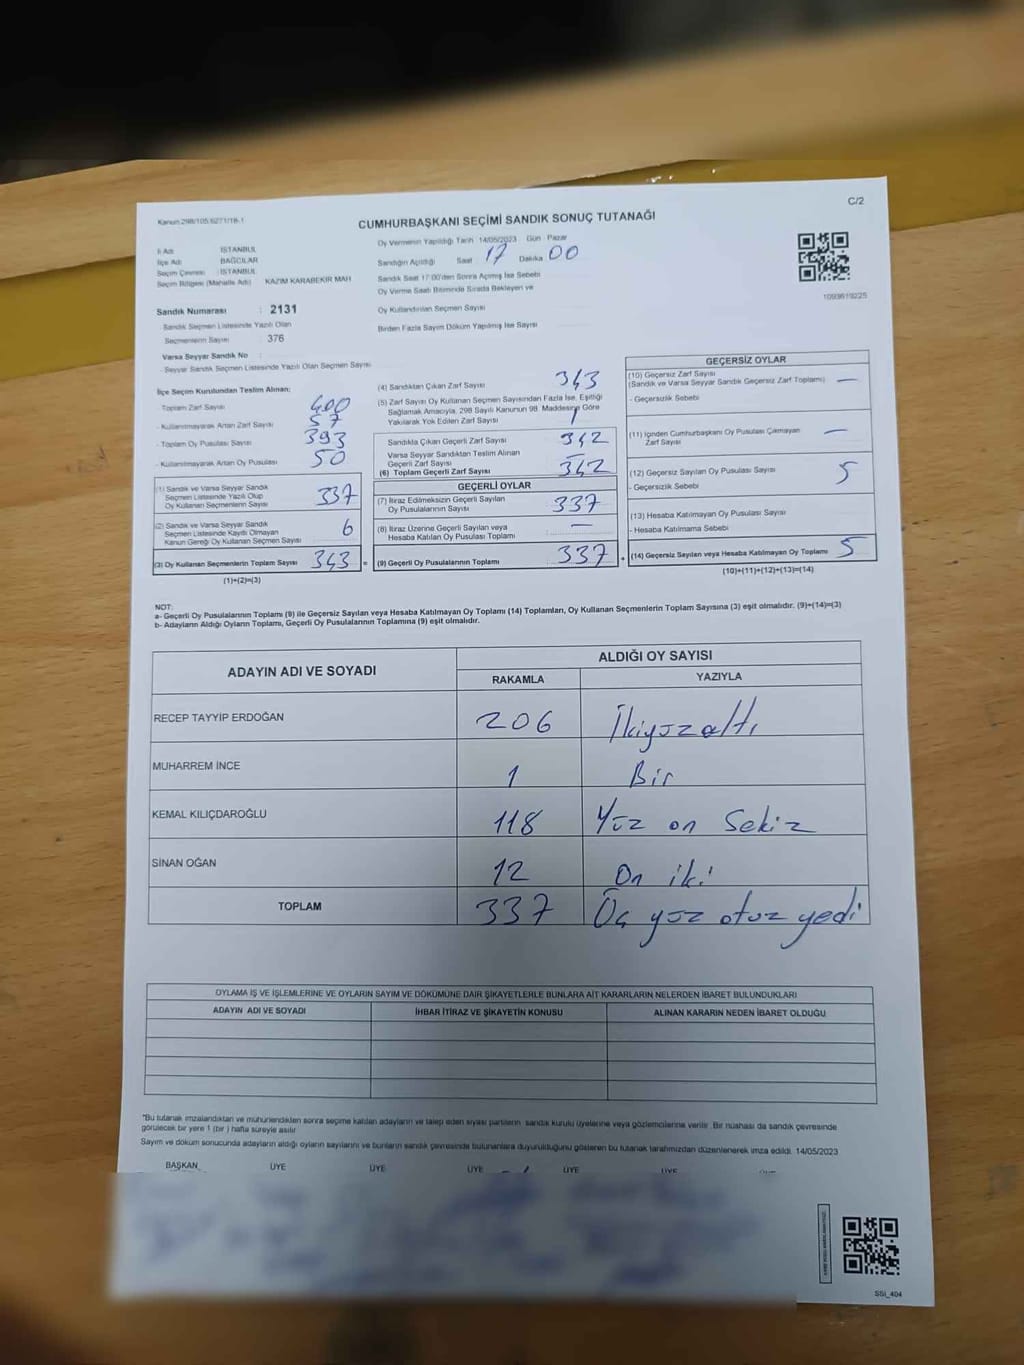 Kanun 298/105 6271/18-1
C/2
CUMHURBAŞKANI SEÇİMİ SANDIK SONUÇ TUTANAĞI
İli Adı : İSTANBUL
İlçe Adı : BAĞCILAR
Seçim Çevresi : İSTANBUL
Seçim Bölgesi (Mahalle Adı) : KAZIM KARABEKİR MAH
Oy Vermenin Yapıldığı Tarih 14/05/2023 Gün Pazar
Sandığın Açıldığı Saat 17 Dakika 00
Sandık Saat 17:00'den Sonra Açılmış İse Sebebi
Oy Verme Saati Bitiminde Sırada Bekleyen ve
Oy Kullandırılan Seçmen Sayısı
Birden Fazla Sayım Döküm Yapılmış İse Sayısı
Sandık Numarası : 2131
Sandık Seçmen Listesinde Yazılı Olan
Seçmenlerin Sayısı : 376
Varsa Seyyar Sandık No :
- Seyyar Sandık Seçmen Listesinde Yazılı Olan Seçmen Sayısı
İlçe Seçim Kurulundan Teslim Alınan:
- Toplam Zarf Sayısı 400
- Kullanılmayarak Artan Zarf Sayısı 57
- Toplam Oy Pusulası Sayısı 393
- Kullanılmayarak Artan Oy Pusulası 50
(1) Sandık ve Varsa Seyyar Sandık
Seçmen Listesinde Yazılı Olup
Oy Kullanan Seçmenlerin Sayısı 337
(2) Sandık ve Varsa Seyyar Sandık
Seçmen Listesinde Kayıtlı Olmayan
Kanun Gereği Oy Kullanan Seçmen Sayısı 6
(3) Oy Kullanan Seçmenlerin Toplam Sayısı 343 =
(1)+(2)=(3)
(4) Sandıktan Çıkan Zarf Sayısı 343
(5) Zarf Sayısı Oy Kullanan Seçmen Sayısından Fazla İse, Eşitliği
Sağlamak Amacıyla, 298 Sayılı Kanunun 98. Maddesine Göre
Yakılarak Yok Edilen Zarf Sayısı 1
Sandıkla Çıkan Geçerli Zarf Sayısı 342
Varsa Seyyar Sandıktan Teslim Alınan
Geçerli Zarf Sayısı —
(6) Toplam Geçerli Zarf Sayısı 342
GEÇERLİ OYLAR
(7) İtiraz Edilmeksizin Geçerli Sayılan
Oy Pusulalarının Sayısı 337
(8) İtiraz Üzerine Geçerli Sayılan veya
Hesaba Katılan Oy Pusulası Toplamı —
(9) Geçerli Oy Pusulalarının Toplamı 337 +
1093619225
GEÇERSİZ OYLAR
(10) Geçersiz Zarf Sayısı
(Sandık ve Varsa Seyyar Sandık Geçersiz Zarf Toplamı) —
- Geçersizlik Sebebi
(11) İçinden Cumhurbaşkanı Oy Pusulası Çıkmayan
Zarf Sayısı —
(12) Geçersiz Sayılan Oy Pusulası Sayısı 5
- Geçersizlik Sebebi
(13) Hesaba Katılmayan Oy Pusulası Sayısı
- Hesaba Katılmama Sebebi
(14) Geçersiz Sayılan veya Hesaba Katılmayan Oy Toplamı 5
(10)+(11)+(12)+(13)=(14)
NOT:
a- Geçerli Oy Pusulalarının Toplamı (9) ile Geçersiz Sayılan veya Hesaba Katılmayan Oy Toplamı (14) Toplamları, Oy Kullanan Seçmenlerin Toplam Sayısına (3) eşit olmalıdır. (9)+(14)=(3)
b- Adayların Aldığı Oyların Toplamı, Geçerli Oy Pusulalarının Toplamına (9) eşit olmalıdır.
ADAYIN ADI VE SOYADI
ALDIĞI OY SAYISI
RAKAMLA YAZIYLA
RECEP TAYYİP ERDOĞAN 206 İkiyüzaltı
MUHARREM İNCE 1 Bir
KEMAL KILIÇDAROĞLU 118 Yüz on Sekiz
SİNAN OĞAN 12 On iki
TOPLAM 337 Üç yüz otuz yedi
OYLAMA İŞ VE İŞLEMLERİNE VE OYLARIN SAYIM VE DÖKÜMÜNE DAİR ŞİKAYETLERLE BUNLARA AİT KARARLARIN NELERDEN İBARET BULUNDUKLARI
ADAYIN ADI VE SOYADI İHBAR İTİRAZ VE ŞİKAYETİN KONUSU ALINAN KARARIN NEDEN İBARET OLDUĞU
*Bu tutanak imzalandıktan ve mühürlendikten sonra seçime katılan adayların ve talep eden siyasi partilerin sandık kurulu üyelerine veya gözlemcilerine verilir. Bir nüshası da sandık çevresinde
görülecek bir yere 1 (bir) hafta süreyle asılır.
Sayım ve döküm sonucunda adayların aldığı oyların sayılarını ve bunların sandık çevresinde bulunanlara duyurulduğunu gösteren bu tutanak tarafımızdan düzenlenerek imza edildi. 14/05/2023
BAŞKAN ÜYE ÜYE ÜYE ÜYE ÜYE
SSİ_404